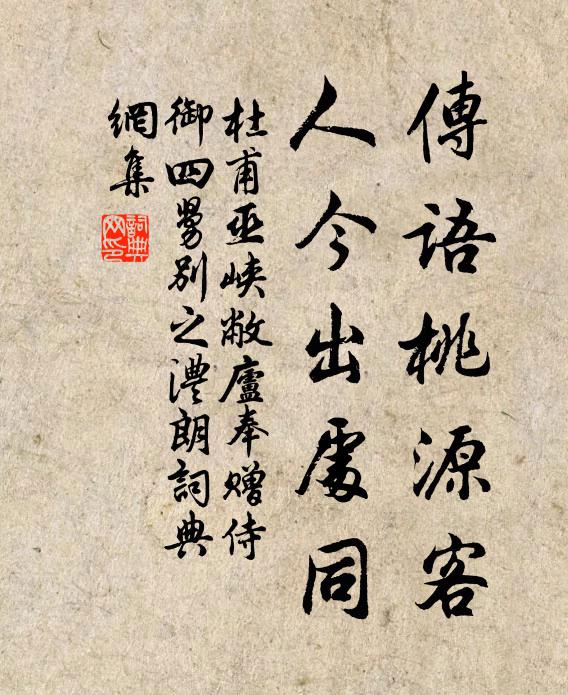 傳語桃源客
人今出處同
杜甫巫峽敝廬奉贈侍
御四舅別之澧朗詞典
網集
詞典
网印